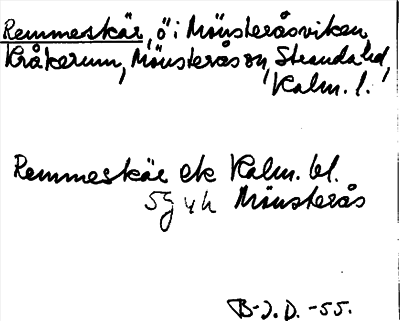 Remmeskär, ö i Mönsteråsviken,
Kråkerum, Mönsterås sn, Stranda hd,
Kalm. l.
Remmeskär ek Kalm. bl.
5g vh Mönsterås
B-J.D. -55.